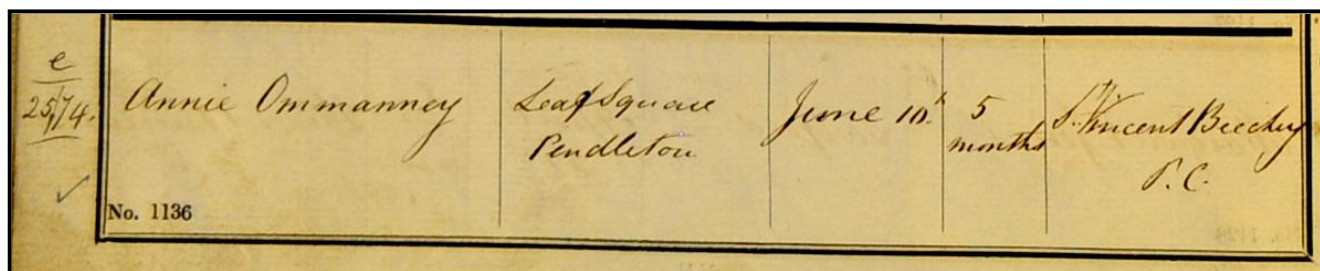 e
25/74.
Annie Ommanney
Leaf Square
Pendleton
June 10th
5
months
St. Vincent Beechey
P.C.
No. 1136